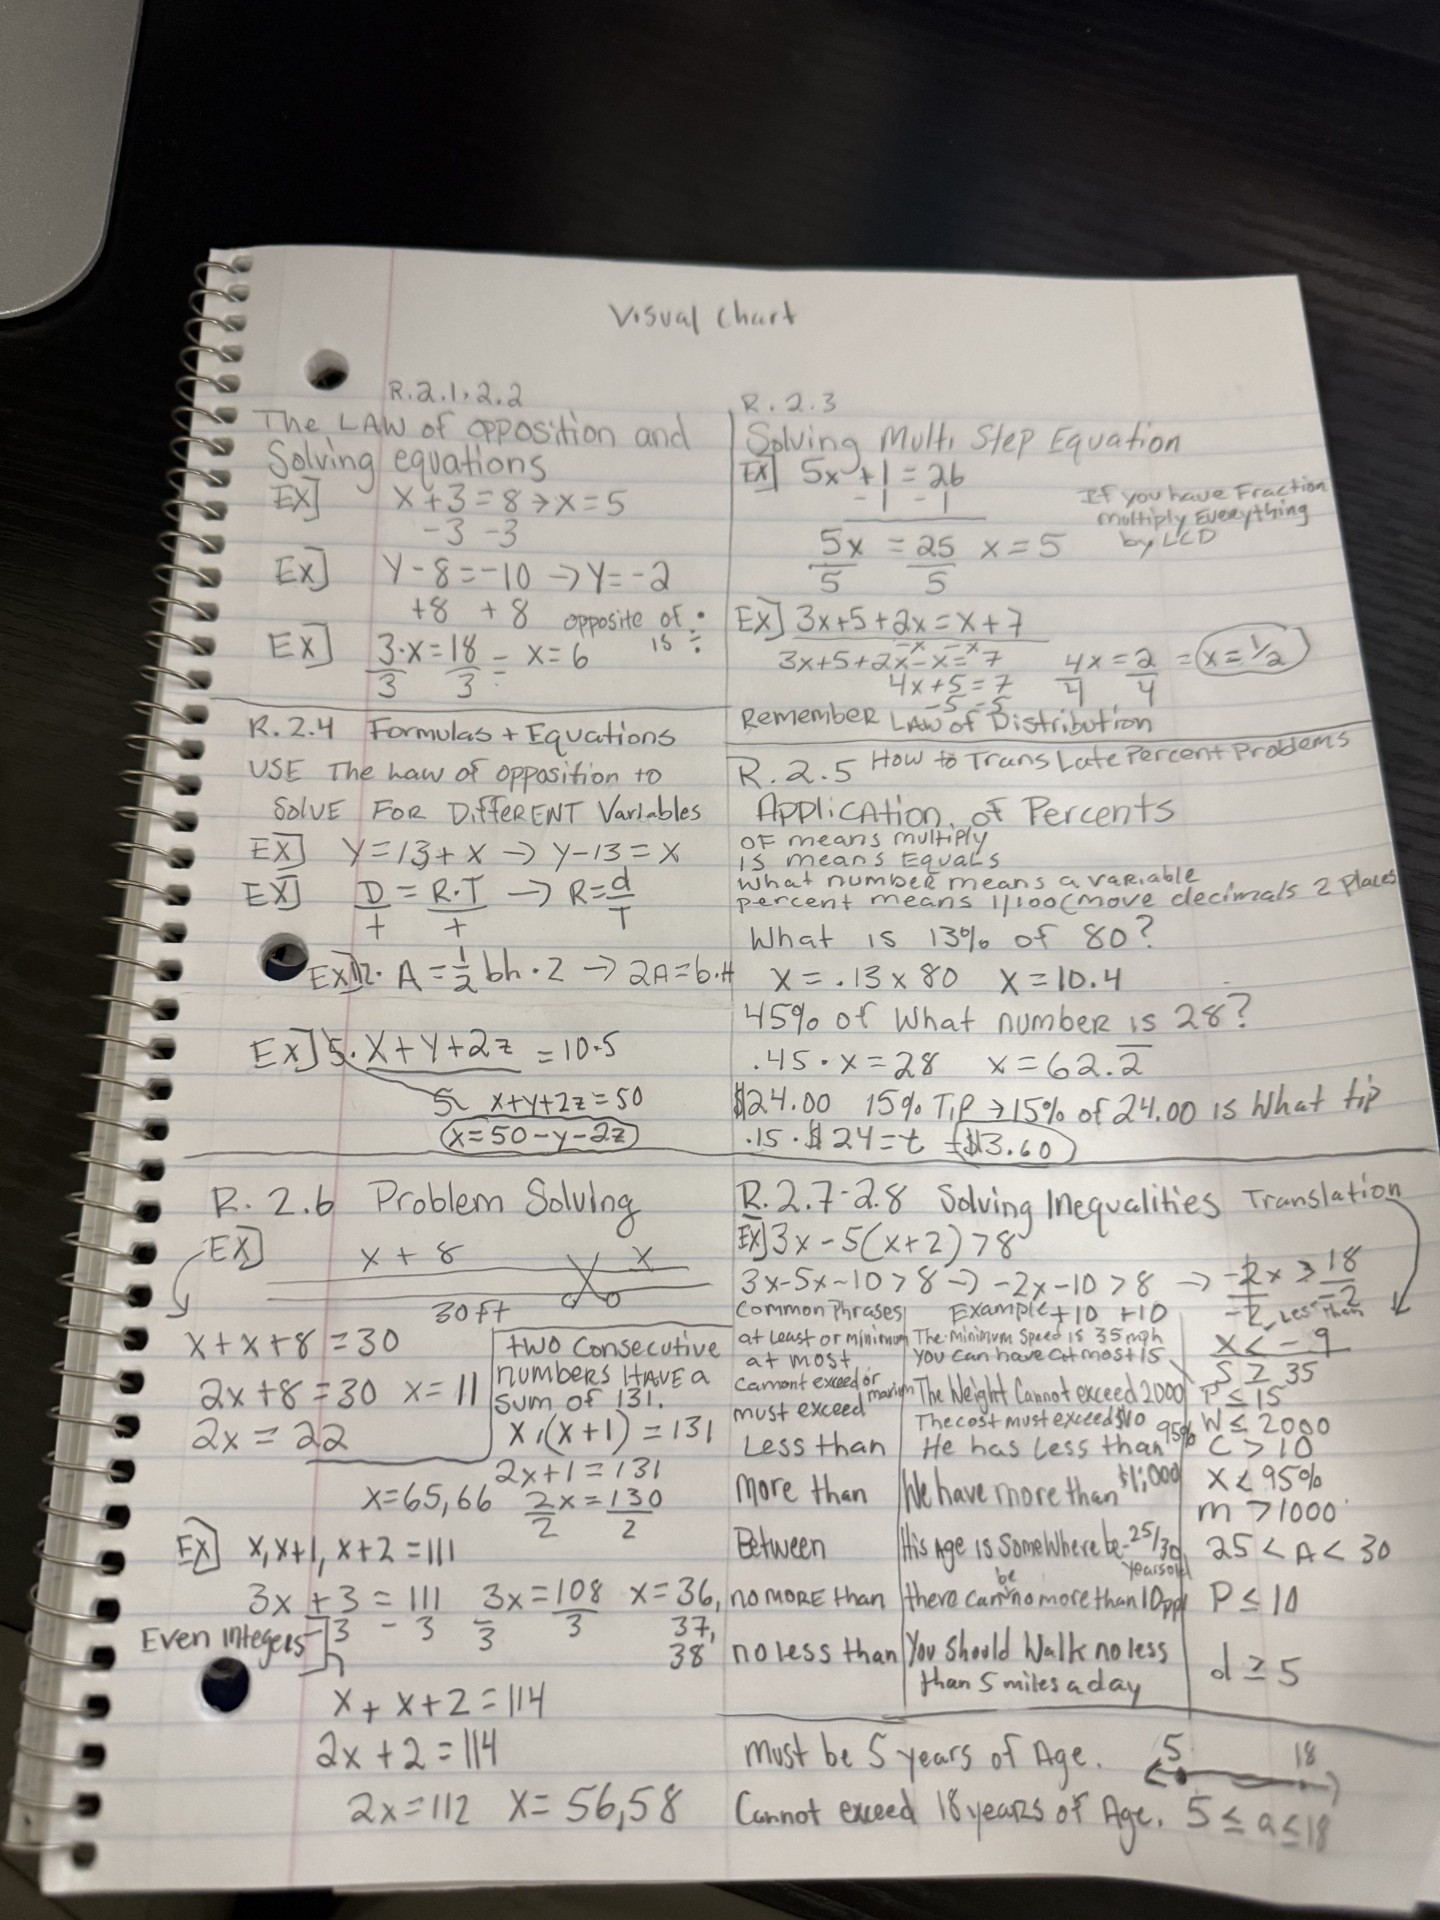 Visual Chart
R.2.1, 2.2
The LAW of opposition and
Solving equations
EX] x + 3 = 8 → x = 5
-3 -3
EX] Y - 8 = -10 → Y = -2
+8 +8 opposite of •
is ÷
EX] 3·x = 18 = x = 6
3 3
R.2.3
Solving Multi Step Equation
EX] 5x + 1 = 26
- 1 - 1
If you have Fraction
multiply Everything
by LCD
5x = 25 x = 5
5 5
EX] 3x+5+2x=x+7
-x -x
3x+5+2x-x= 7
4x+5=7
-5 -5
4x = 2 = x = 1/2
4 4
Remember LAW of Distribution
R.2.4 Formulas + Equations
USE The Law of opposition to
SOLVE FOR DiffeRENT Variables
EX] Y = 13 + x → y-13 = x
EX] D = R·T → R = d
t t T
EX] 2· A = 1/2 bh · 2 → 2A = b·H
EX] 5· X + Y + 2z = 10·5
5 x+y+2z = 50
x = 50 - y - 2z
R.2.5 How to TransLate Percent Problems
Application of Percents
OF means multiply
IS means Equals
What number means a variable
percent means 1/100 (move decimals 2 places
What is 13% of 80?
x = .13 x 80 x = 10.4
45% of What number is 28?
.45 · x = 28 x = 62.2̅
$24.00 15% Tip → 15% of 24.00 is What tip
.15 · $24 = t = $3.60
R. 2.6 Problem Solving
EX] x + 8 x
30ft
x + x + 8 = 30
2x + 8 = 30 x = 11
2x = 22
two Consecutive
numbers HAVE a
sum of 131.
x, (x+1) = 131
2x+1 = 131
x=65,66 2x = 130
2 2
EX] x, x+1, x+2 = 111
3x + 3 = 111 3x = 108 x = 36,
-3 - 3 3 3 37,
38
Even integers
x + x + 2 = 114
2x + 2 = 114
2x = 112 x = 56,58
R.2.7-2.8 Solving Inequalities Translation
EX] 3x - 5(x+2) > 8
3x-5x-10 > 8 → -2x-10 > 8 → -2x > 18
+10 +10 -2 -2
Less than
x < -9
Common Phrases Example
at least or minimum The Minimum Speed is 35 mph S ≥ 35
at most You can have at most 15 P ≤ 15
Cannont exceed or maximum The Weight Cannot exceed 2000 W ≤ 2000
must exceed The cost must exceed $10 C > 10
Less than He has less than 95% x < 95%
more than We have more than $1,000 m > 1000
Between His Age is Somewhere be-25/30 years old 25 < A < 30
no MORE than there can be no more than 10 ppl P ≤ 10
no less than You Should Walk no less d ≥ 5
than 5 miles a day
Must be 5 years of Age. 5 18
Cannot exceed 18 years of Age. 5 ≤ a ≤ 18